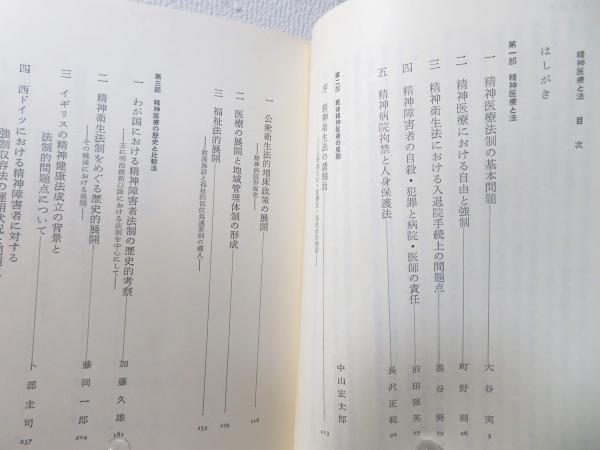 精神医療と法　目次
はしがき
第一部　精神医療と法
一　精神医療法制の基本問題　大谷　実　3
二　精神医療における自由と強制　町野　朔　26
三　精神衛生法における入退院手続上の問題点　墨谷　葵　59
四　精神障害者の自殺・犯罪と病院・医師の責任　前田雅英　77
五　精神病院拘禁と人身保護法　長沢正範　92
第二部　戦後精神医療の展開
序　精神衛生法の諸側面　中山宏太郎　113
一　公衆衛生法的増床政策の展開　116
――精神病院形成史――
二　医療の展開と地域管理体制の形成　129
三　福祉法的展開　153
――救護施設と福祉的低位処遇原則の導入――
第三部　精神医療の歴史と比較法
一　わが国における精神障害者法制の歴史的考察　加藤久雄　181
――主に明治維新以降における法制を中心にして――
二　精神衛生法制をめぐる歴史的展開　藤岡一郎　204
――その戦後における展開――
三　イギリスの精神健康法成立の背景と
法制的問題点について　卜部圭司　237
四　西ドイツにおける精神障害者に対する
強制収容法の運用状況と問題